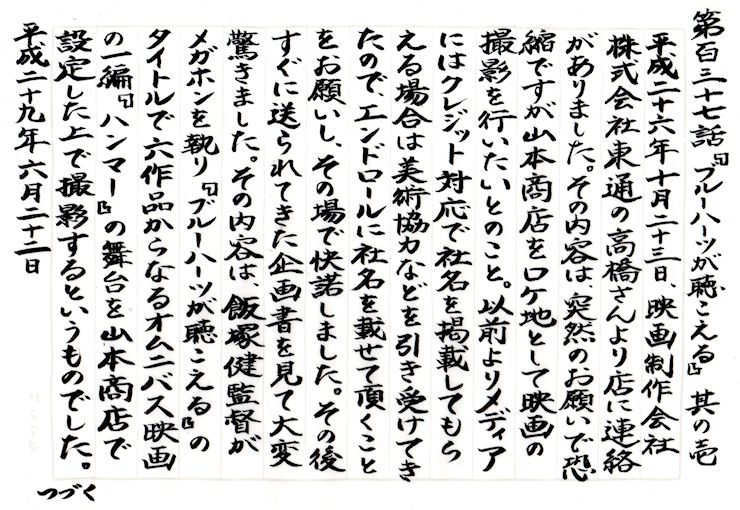 第百三十七話『ブルーハーツが聴こえる』其の壱
平成二十六年十月二十三日、映画制作会社
株式会社東通の高橋さんより店に連絡
がありました。その内容は、突然のお願いで恐
縮ですが山本商店をロケ地として映画の
撮影を行いたいとのこと。以前よりメディア
にはクレジット対応で社名を掲載してもら
える場合は美術協力などを引き受けてき
たので、エンドロールに社名を載せて頂くこと
をお願いし、その場で快諾しました。その後
すぐに送られてきた企画書を見て大変
驚きました。その内容は、飯塚健監督が
メガホンを執り『ブルーハーツが聴こえる』の
タイトルで六作品からなるオムニバス映画
の一編『ハンマー』の舞台を山本商店で
設定した上で撮影するというものでした。
平成二十九年六月二十二日
つづく